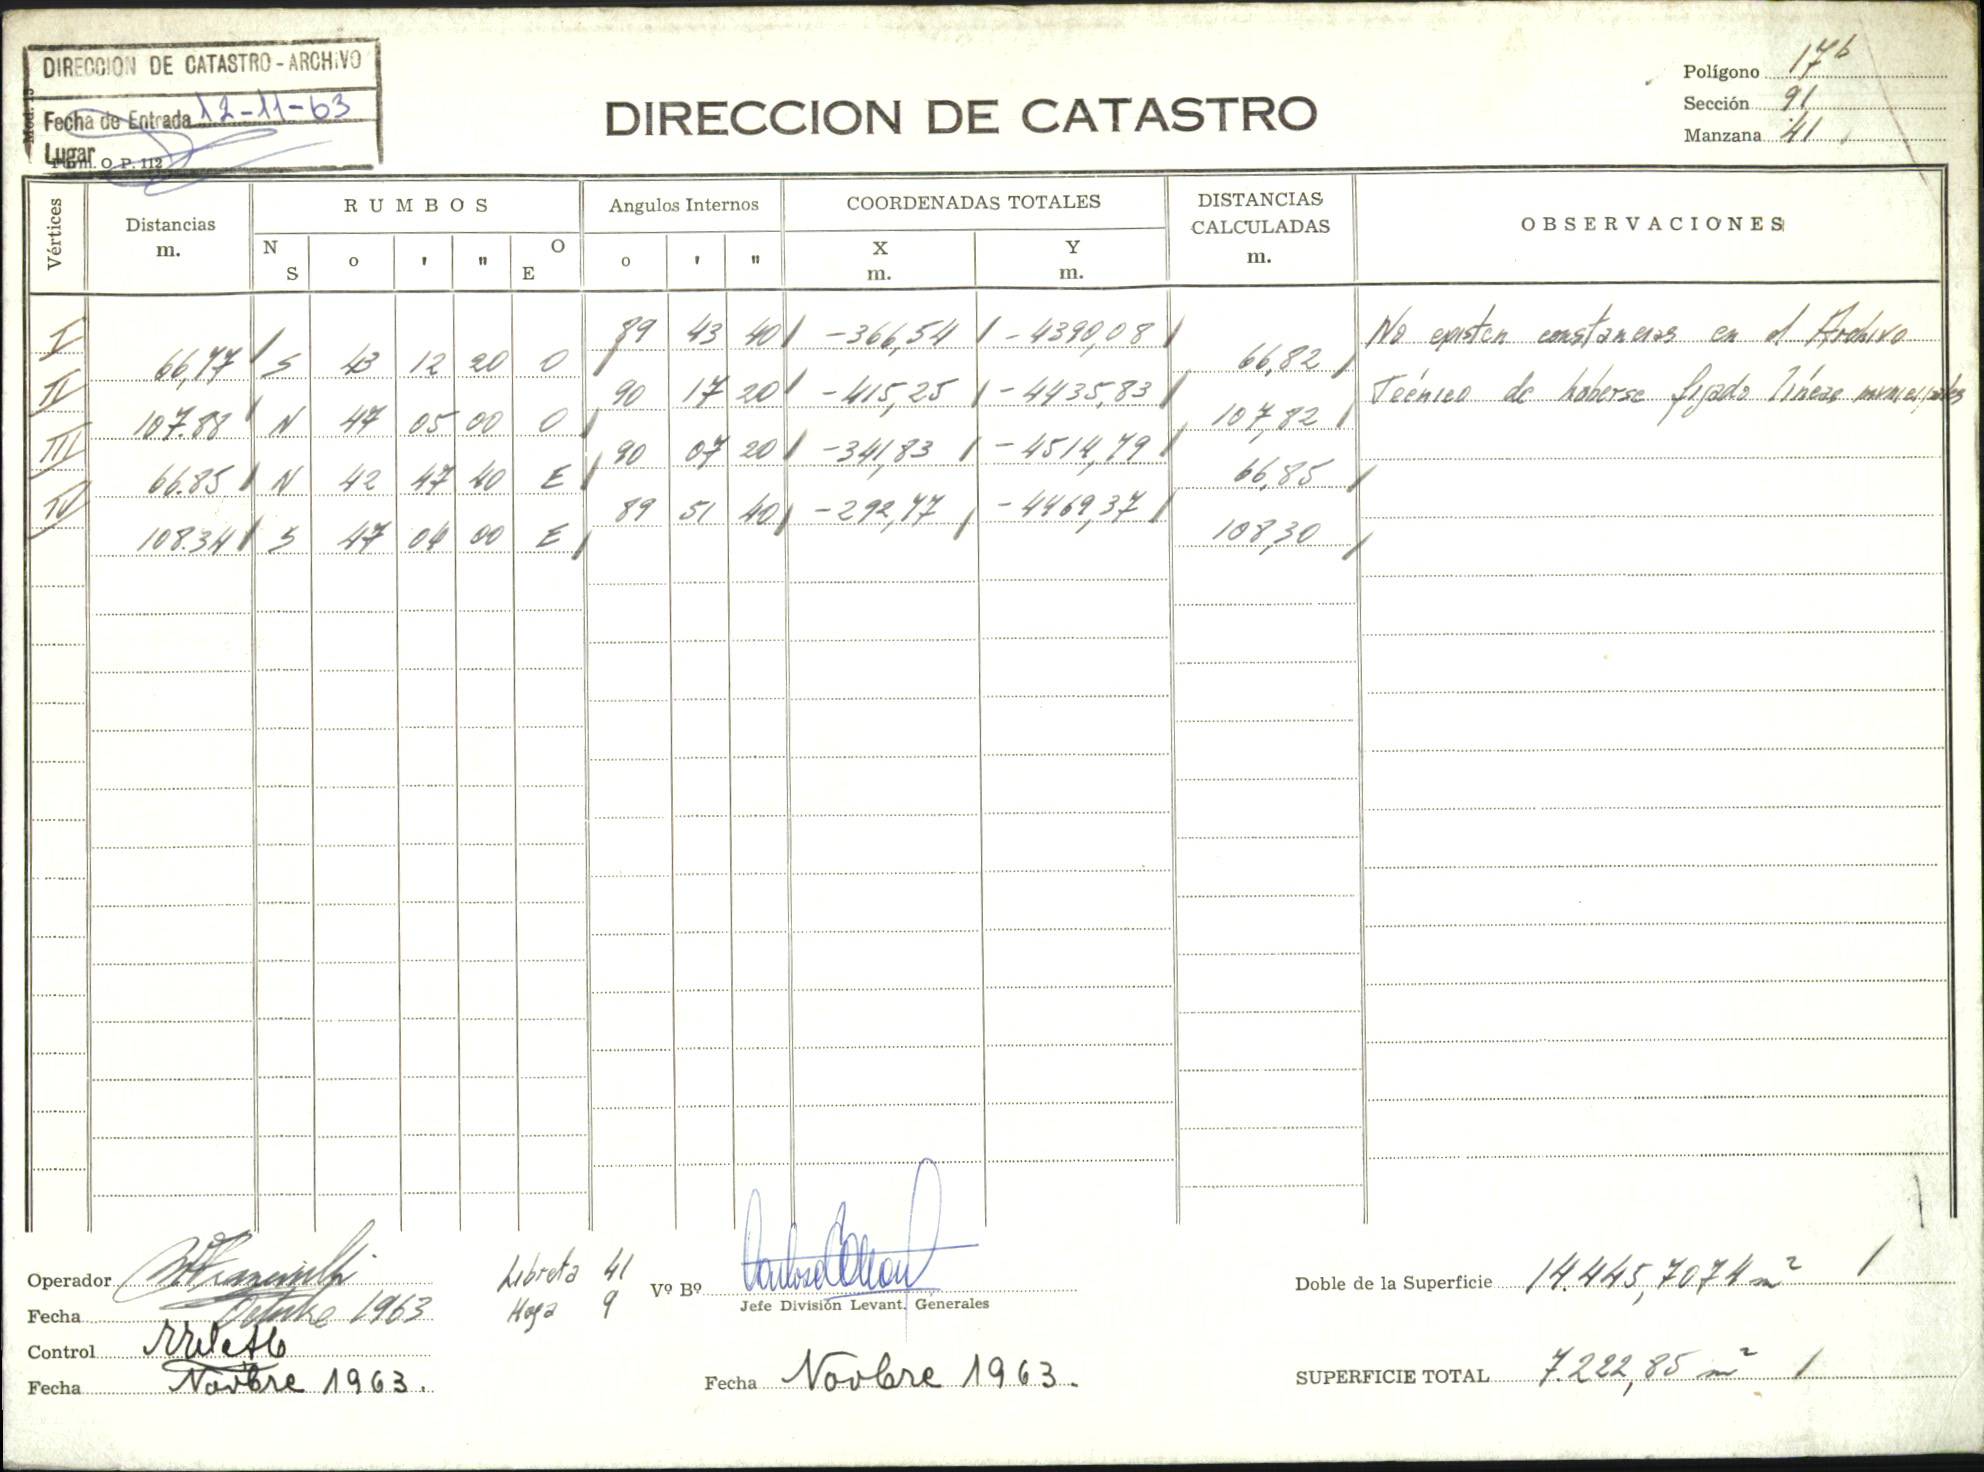 DIRECCION DE CATASTRO - ARCHIVO
Fecha de Entrada 12-11-63
Lugar
Mod. 13
O. P. 112
DIRECCION DE CATASTRO
Polígono 17b
Sección 91
Manzana 41
Vértices
Distancias m.
RUMBOS
N S o ' " O E
Angulos Internos
o ' "
COORDENADAS TOTALES
X m. Y m.
DISTANCIAS CALCULADAS m.
OBSERVACIONES
I 89 43 40 -366,54 -4390,08 No existen constancias en el Archivo
66,77 S 43 12 20 O 66,82
II 90 17 20 -415,25 -4435,83 Técnico de haberse fijado líneas municipales
107.88 N 47 05 00 O 107,82
III 90 07 20 -341,83 -4514,79
66.85 N 42 47 40 E 66,85
IV 89 51 40 -292,77 -4469,37
108.34 S 47 04 00 E 108,30
Operador
Fecha Octubre 1963
Control
Fecha Novbre 1963.
Libreta 41
Hoja 9
Vº Bº
Jefe División Levant. Generales
Fecha Novbre 1963.
Doble de la Superficie 14.445,7074 m²
SUPERFICIE TOTAL 7.222,85 m²